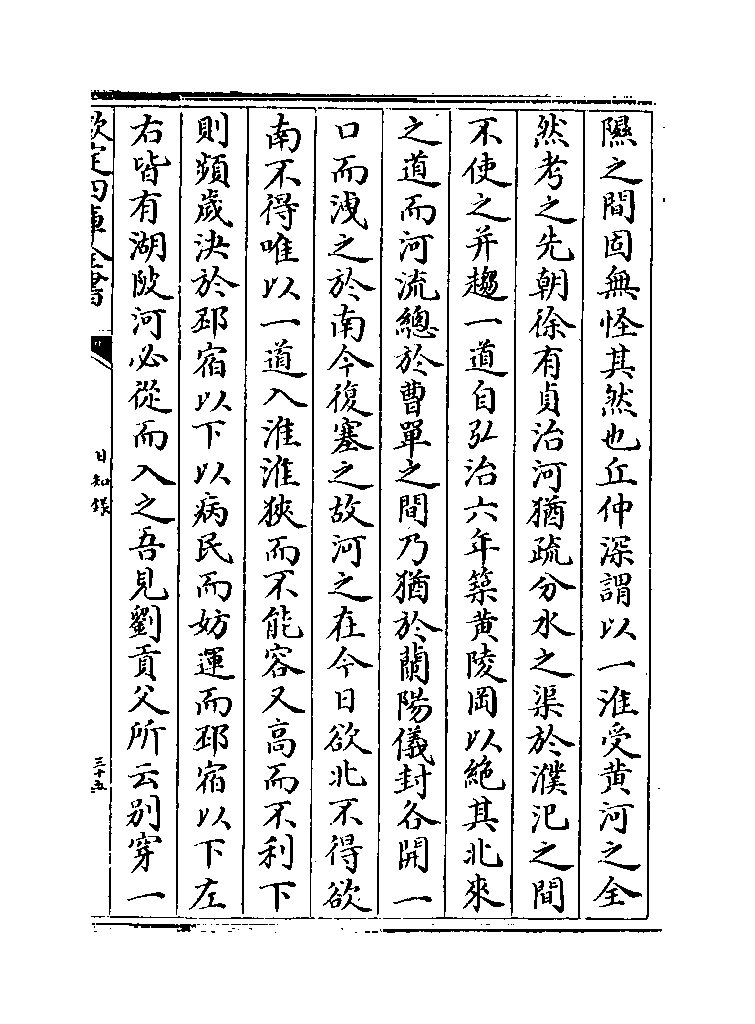 隰之間固無怪其然也丘仲深謂以一淮受黄河之全
然考之先朝徐有貞治河猶疏分水之渠於濮汜之間
不使之并趨一道自弘治六年築黄陵岡以絶其北來
之道而河流總於曹單之間乃猶於蘭陽儀封各開一
口而洩之於南今復塞之故河之在今日欲北不得欲
南不得唯以一道入淮淮狹而不能容又高而不利下
則頻歲決於邳宿以下以病民而妨運而邳宿以下左
右皆有湖陂河必從而入之吾見劉貢父所云別穿一
欽定四庫全書
日知録
三十五